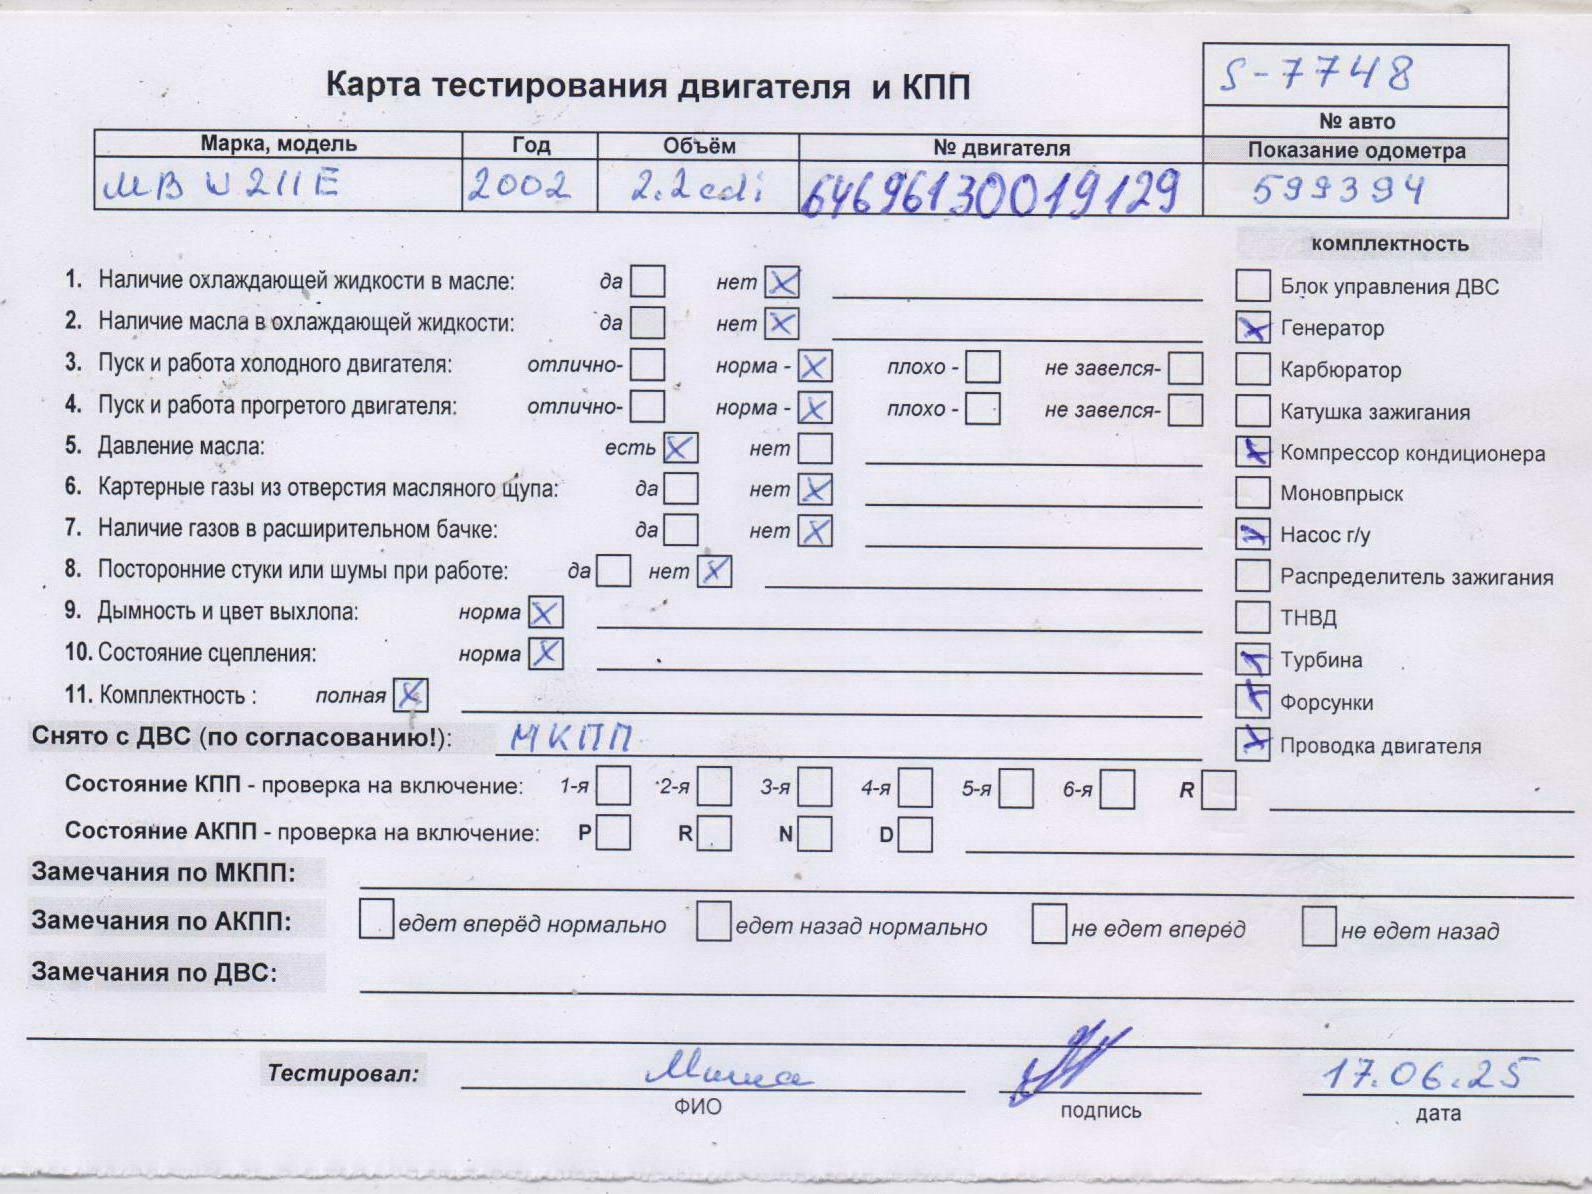 S-7748
Карта тестирования двигателя и КПП
№ авто
Марка, модель Год Объём № двигателя Показание одометра
MB W211E 2002 2.2cdi 64696130019129 599394
комплектность
1. Наличие охлаждающей жидкости в масле: да нет X
Блок управления ДВС
2. Наличие масла в охлаждающей жидкости: да нет X
X Генератор
3. Пуск и работа холодного двигателя: отлично- норма - X плохо - не завелся-
Карбюратор
4. Пуск и работа прогретого двигателя: отлично- норма - X плохо - не завелся-
Катушка зажигания
5. Давление масла: есть X нет
X Компрессор кондиционера
6. Картерные газы из отверстия масляного щупа: да нет X
Моновпрыск
7. Наличие газов в расширительном бачке: да нет X
X Насос г/у
8. Посторонние стуки или шумы при работе: да нет X
Распределитель зажигания
9. Дымность и цвет выхлопа: норма X
ТНВД
10. Состояние сцепления: норма X
X Турбина
11. Комплектность : полная X
X Форсунки
Снято с ДВС (по согласованию!): МКПП
X Проводка двигателя
Состояние КПП - проверка на включение: 1-я 2-я 3-я 4-я 5-я 6-я R
Состояние АКПП - проверка на включение: P R N D
Замечания по МКПП:
Замечания по АКПП: едет вперёд нормально едет назад нормально не едет вперёд не едет назад
Замечания по ДВС:
Тестировал: Миша 17.06.25
ФИО подпись дата